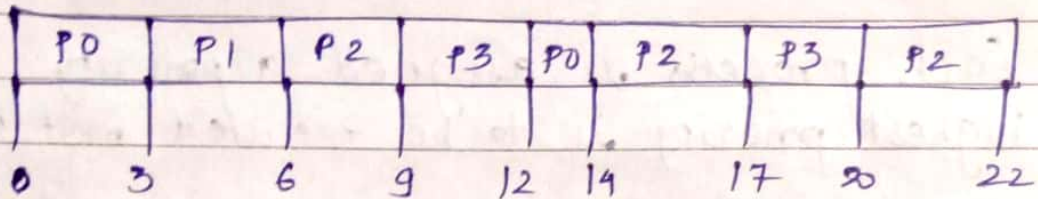 P0 P1 P2 P3 P0 P2 P3 P2
0 3 6 9 12 14 17 20 22